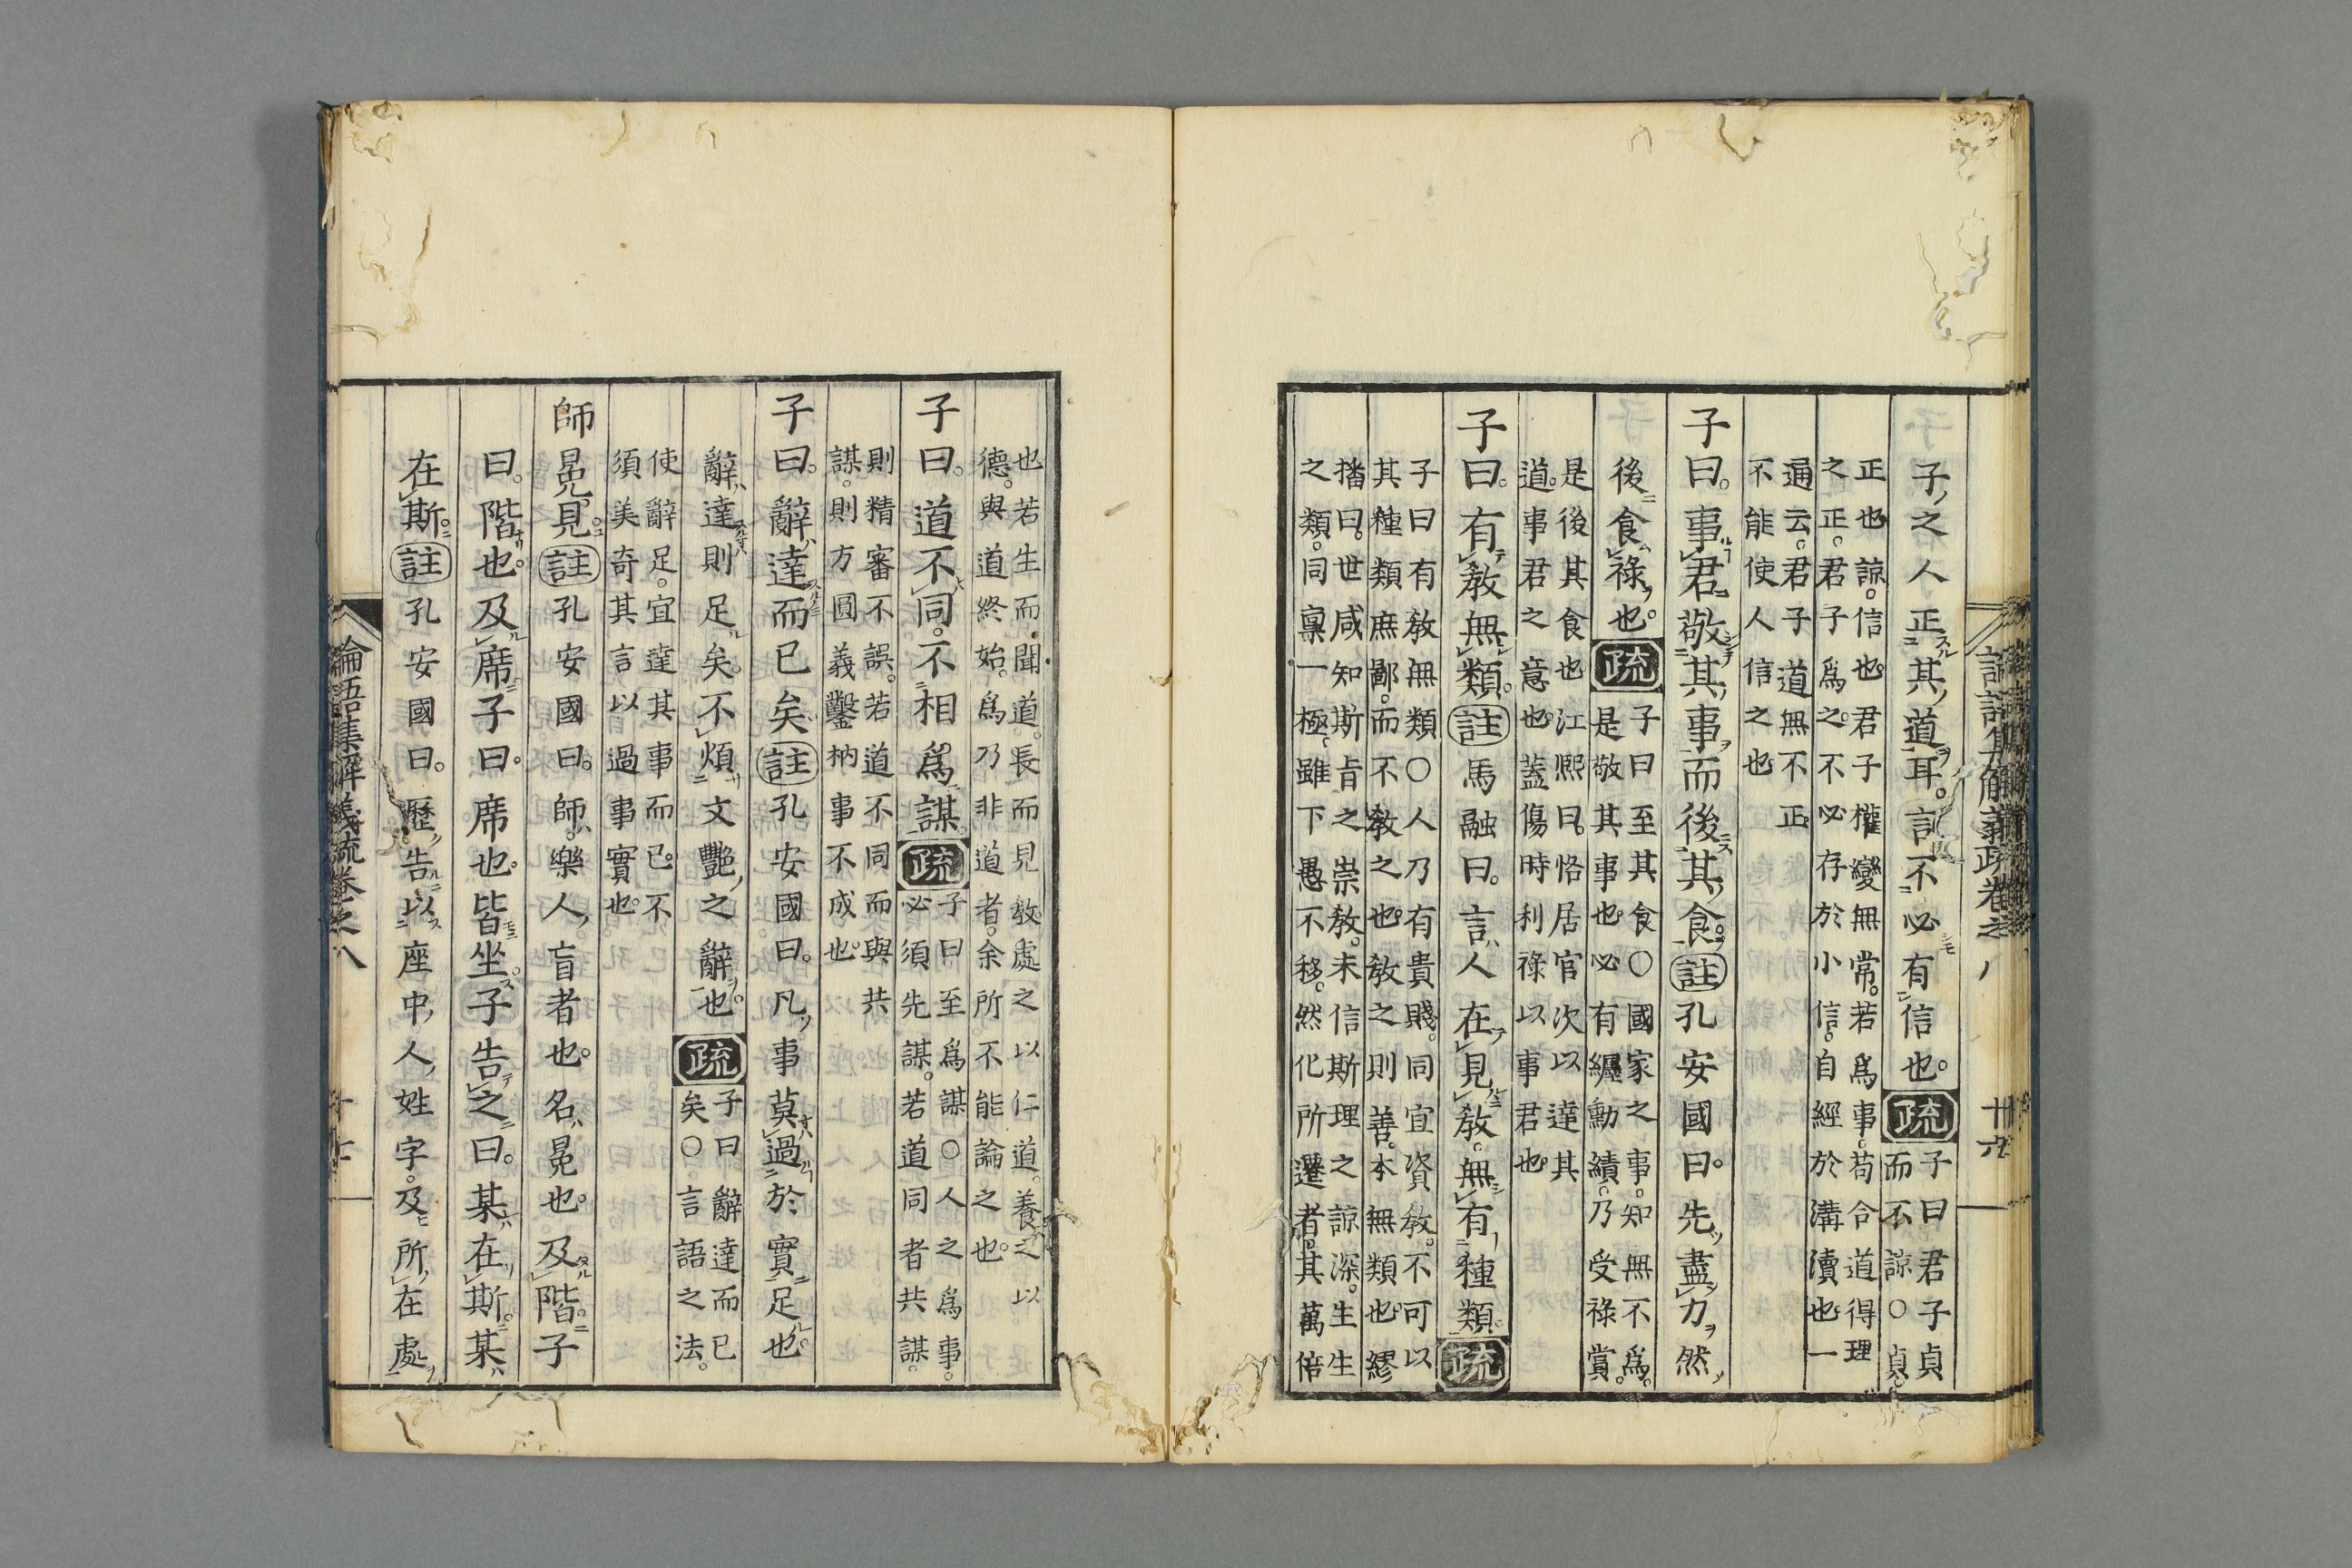 子之人正其道耳。言不必有信也。疏子曰君子貞
而不諒○貞。
正也諒。信也君子權變無常。若爲事。苟合道得理
之正。君子爲之。不必存於小信。自經於溝瀆也一
通云。君子道無不正
不能使人信之也
子曰。事君敬其事而後其食。註孔安國曰。先盡力然
後食祿也。疏子曰至其食○國家之事。知無不爲。
是敬其事也必有纏勳績。乃受祿賞。
是後其食也江熙曰。恪居官次以達其
道。事君之意也。蓋傷時利祿以事君也
子曰。有教無類。註馬融曰。言人在見教。無有種類。疏
子曰有教無類○人乃有貴賤。同宜資教。不可以
其種類庶鄙。而不教之也。教之則善。本無類也。繆
播曰。世咸知斯旨之崇教。未信斯理之諒深。生生
之類。同稟一極。雖下愚不移。然化所遷者。其萬倍
也若生而聞道。長而見教。處之以仁道。養之以
德。與道終始。爲乃非道者。余所不能論之也。
子曰。道不同。不相爲謀。疏子曰至爲謀○人之爲事。
必須先謀。若道同者共謀。
則精審不誤。若道不同而與共
謀。則方圓義鑿枘事不成也。
子曰。辭達而已矣註孔安國曰。凡事莫過於實足也
辭達則足矣。不煩文艷之辭也。疏子曰辭達而已
矣○言語之法。
使辭足。宜達其事而已。不
須美奇其言以過事實也。
師冕見。註孔安國曰。師。樂人盲者也。名冕也。及階。子
曰。階也。及席子曰。席也。皆坐。子告之曰。某在斯。某
在斯。註孔安國曰。歷告以座中人姓字。及所在處
論語集解義疏卷之八